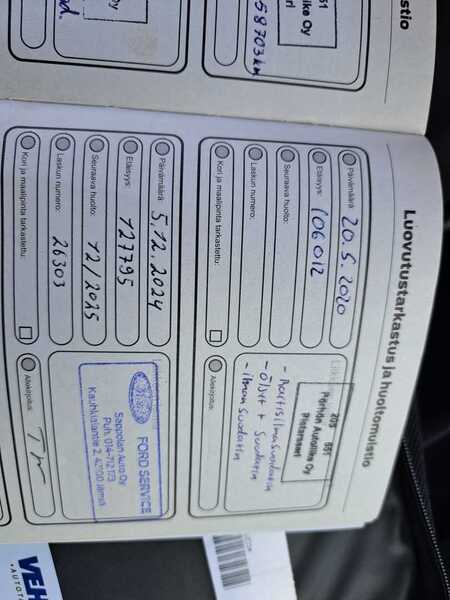 58703km
Luovutustarkastus ja huoltomuistio
Päivämäärä: 20.5.2020
Etäisyys: 106012
Seuraava huolto:
Laskun numero:
Kori ja maalipinta tarkastettu:
209 551
Perhon Autoliike Oy
- öljyt + suodatin
- ilmansuodatin
Allekirjoitus:
Päivämäärä: 5.12.2024
Etäisyys: 127795
Seuraava huolto: 12/2025
Laskun numero: 26303
Kori ja maalipinta tarkastettu:
FORD SERVICE
Seppolan Auto Oy
Puh. 014-712173
42100 Jämsä
Allekirjoitus:
VEH